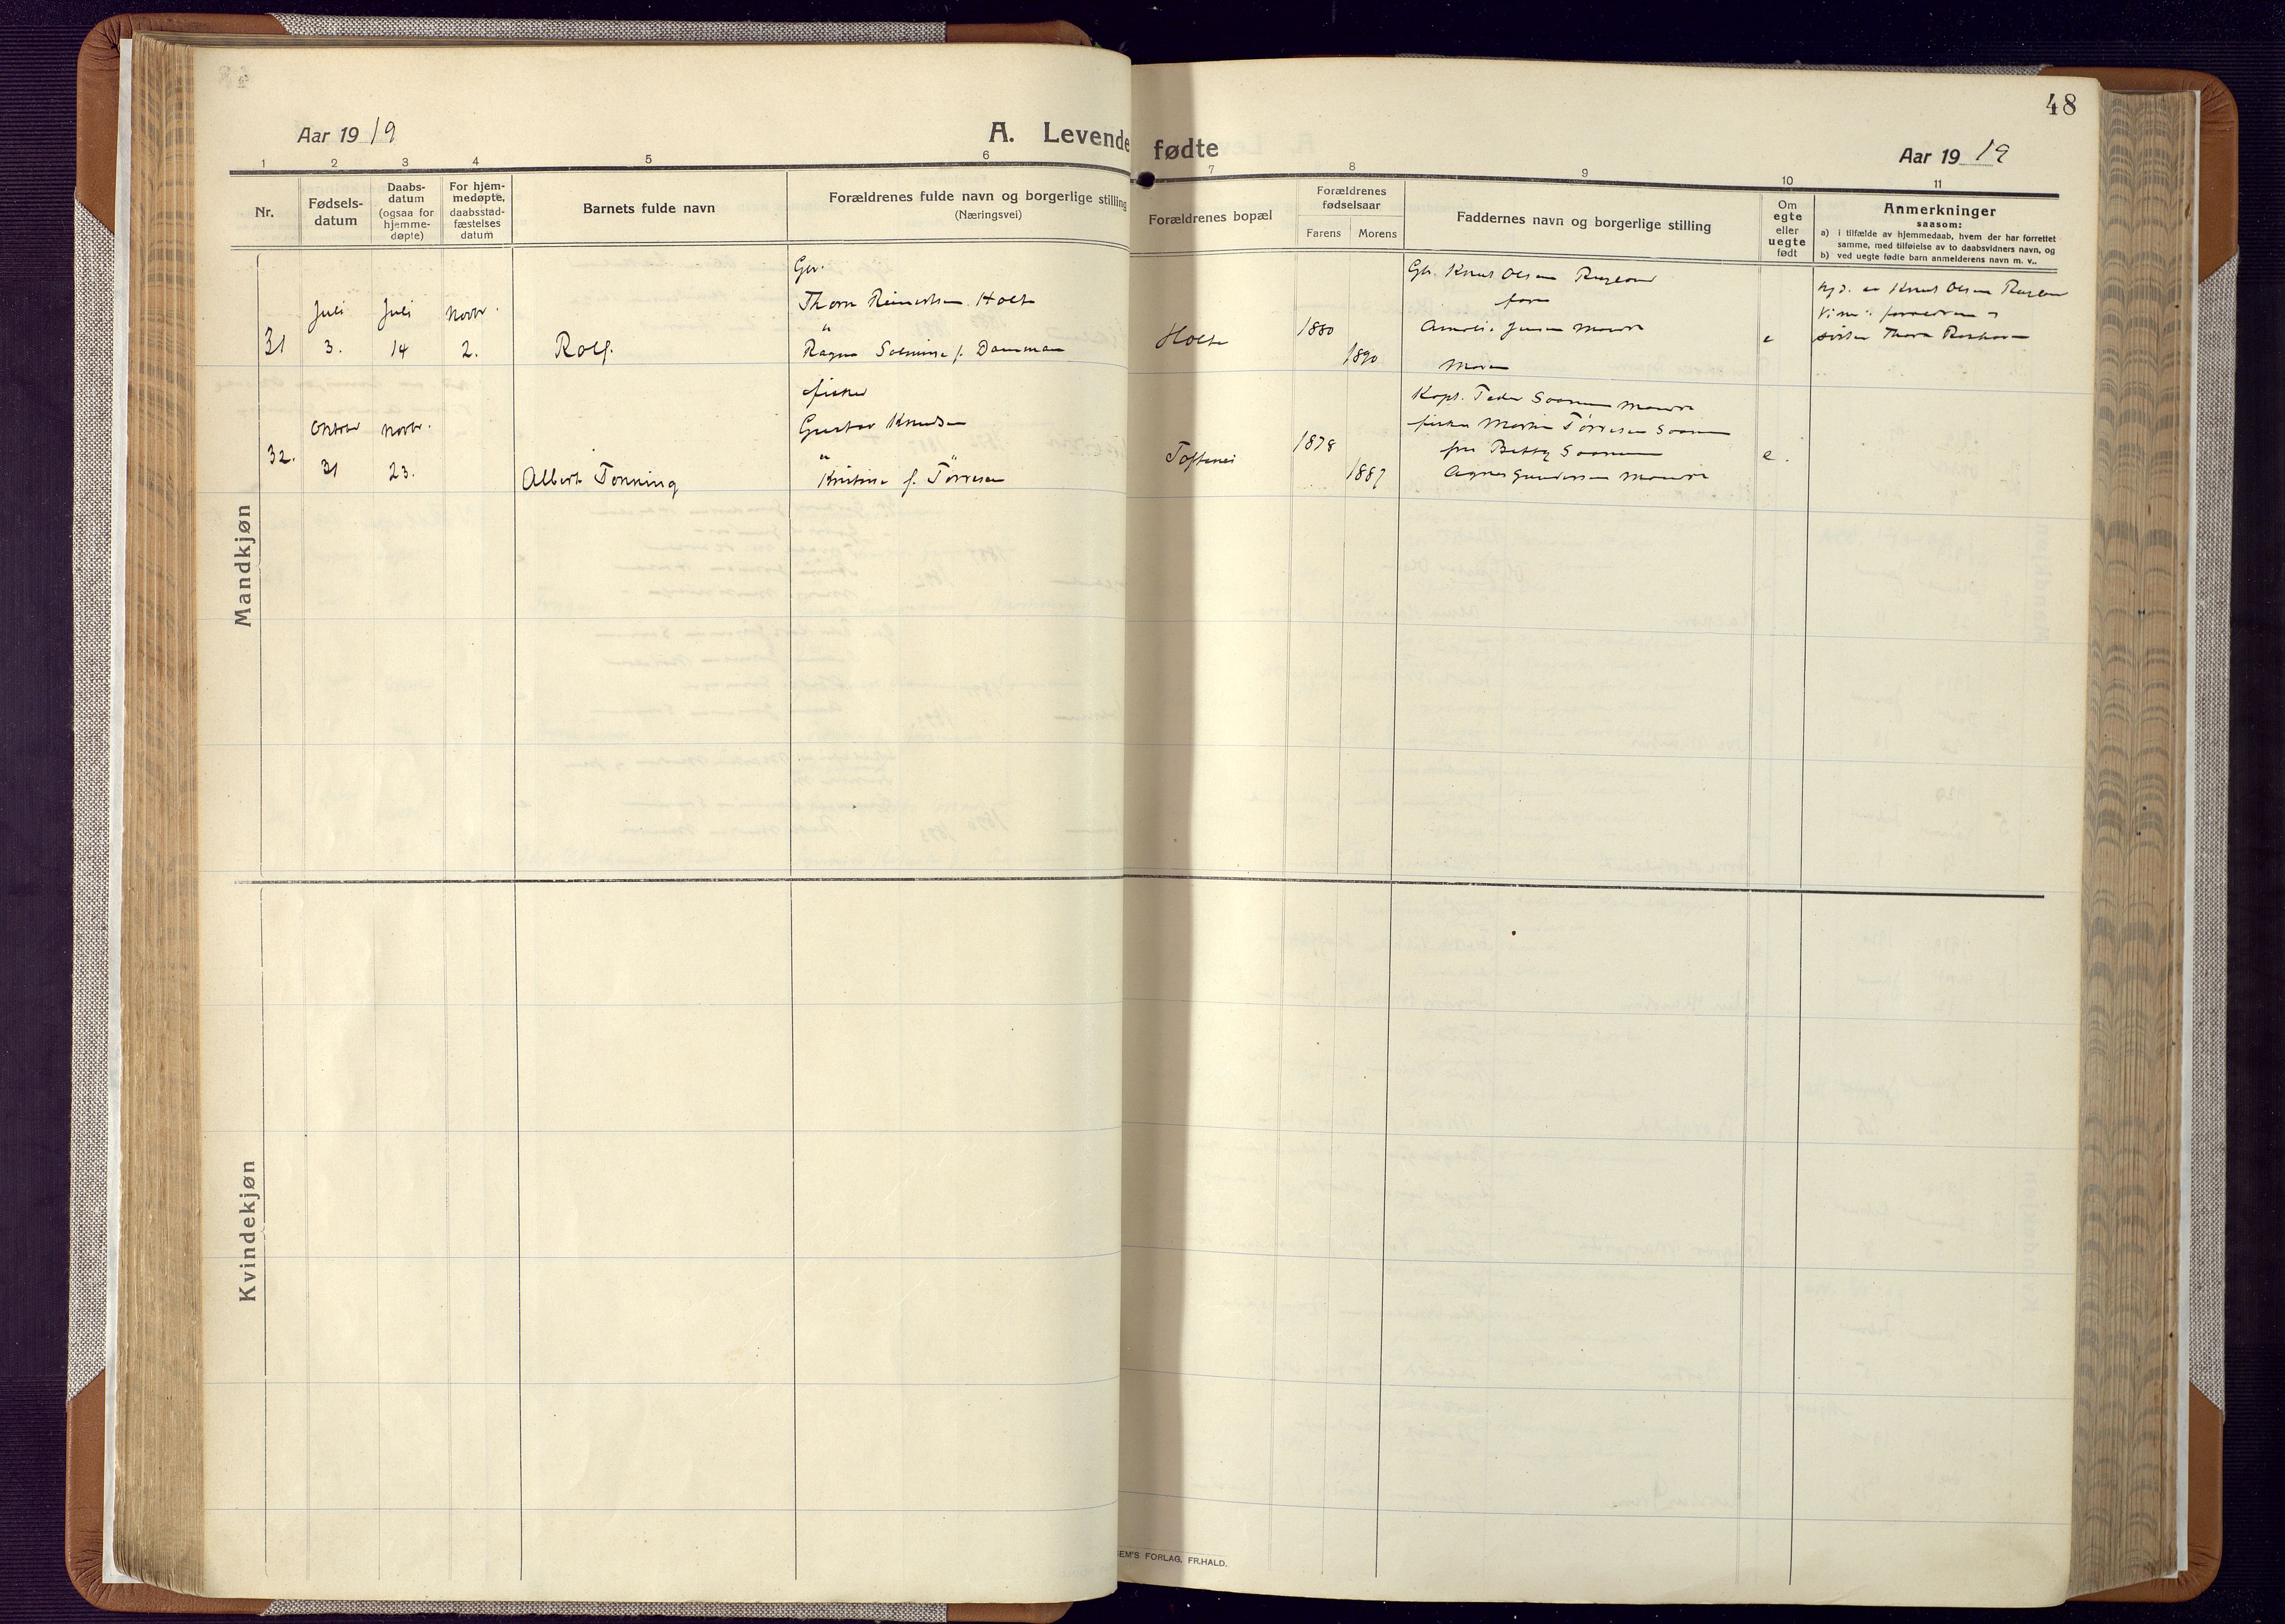 48
Aar 1919
A. Levende fødte
Aar 1919
1 2 3 4 5 6 7 8 9 10 11
Nr.
Fødsels-
datum
Daabs-
datum
(ogsaa for
hjemme-
døpte)
For hjem-
medøpte,
daabsstad-
fæstelses
datum
Barnets fulde navn
Forældrenes fulde navn og borgerlige stilling
(Næringsvei)
Forældrenes bopæl
Forældrenes
fødselsaar
Farens Morens
Faddernes navn og borgerlige stilling
Om
egte
eller
uegte
født
Anmerkninger
saasom:
a) i tilfælde av hjemmedaab, hvem der har forrettet
samme, med tilføielse av to daabsvidners navn, og
b) ved uegte fødte barn anmelderens navn m. v..
Mandkjøn
31
Juli
3.
Juli
14
Novbr.
2.
Rolf.
Gbr.
Thorn Reinertsen Holte
"
Ragna f. Damman
Holte
1880
1890
Gbr. Knut Olsen
faren
Jensen
Moren
e
Knut Olsen
32.
Oktober
31
Novbr.
23.
Albert Tonning
fisker
Gustav Knudsen
" "
Kristine f. Tørresen
Toftenes
1878
1887
Kapt. Peder
fisker Martin Tørresen
fru Betty
Agnes Gundersen
e.
Kvindekjøn
SEM'S FORLAG, FR.HALD.